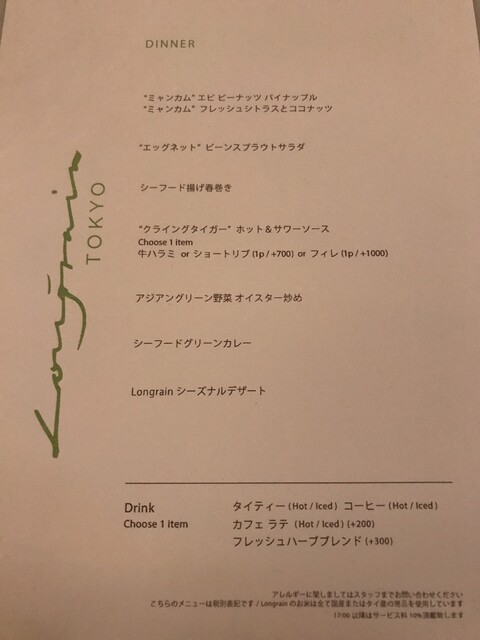 DINNER
"ミャンカム" エビ ピーナッツ パイナップル
"ミャンカム" フレッシュシトラスとココナッツ
"エッグネット" ビーンスプラウトサラダ
シーフード揚げ春巻き
"クライングタイガー" ホット＆サワーソース
Choose 1 item
牛ハラミ or ショートリブ (1p / +700) or フィレ (1p / +1000)
アジアングリーン野菜 オイスター炒め
シーフードグリーンカレー
Longrain シーズナルデザート
Longrain
TOKYO
Drink
Choose 1 item
タイティー ( Hot / Iced ) コーヒー ( Hot / Iced )
カフェ ラテ ( Hot / Iced ) (+200)
フレッシュハーブブレンド (+300)
アレルギーに関しましてはスタッフまでお問い合わせください
こちらのメニューは税別表記です / Longrain のお米は全て国産またはタイ産の商品を使用しています
17:00 以降はサービス料 10% 頂戴致します